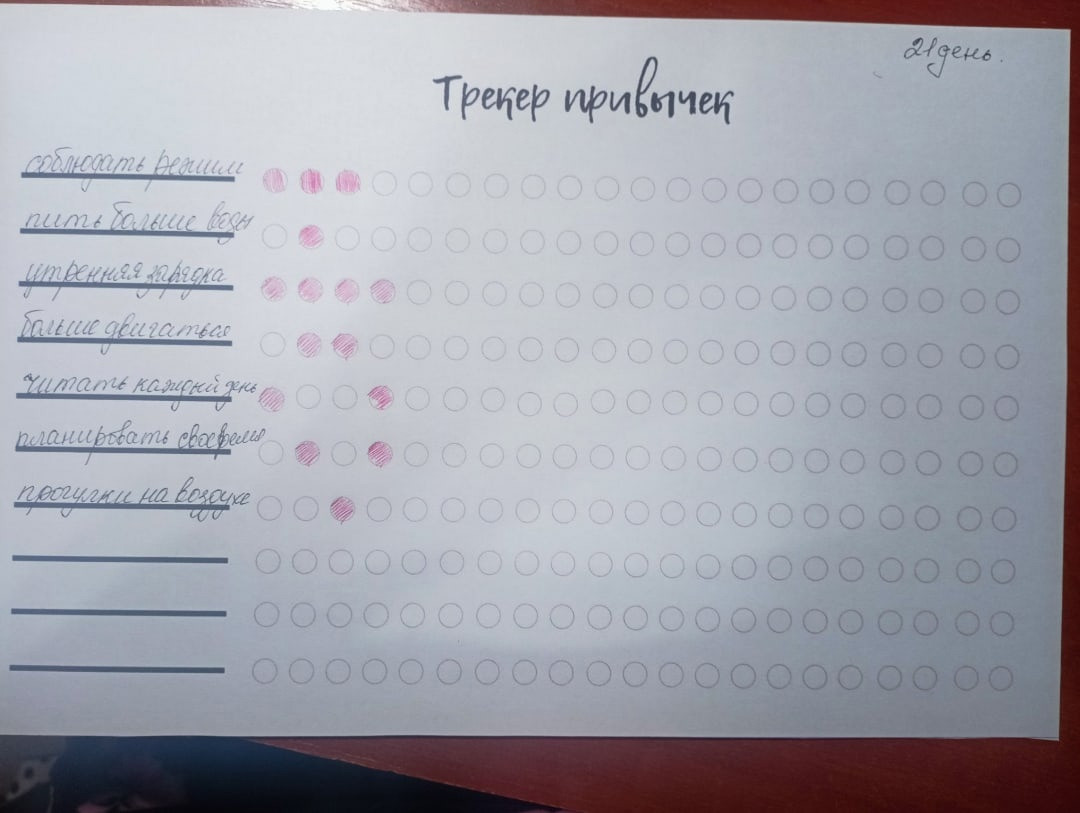 21 день.
Трекер привычек
соблюдать режим
пить больше воды
утренняя зарядка
больше двигаться
читать каждый день
планировать свое время
прогулки на воздухе